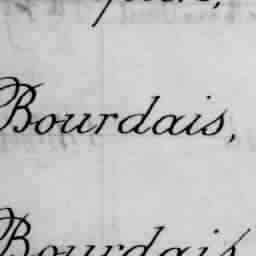 Bourdais,
Bourdais